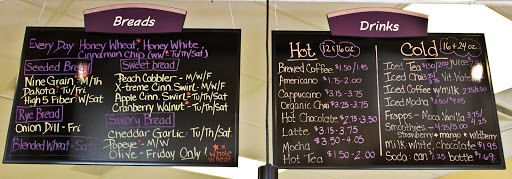 Breads
Every Day Honey Wheat, Honey White,
Cinnamon Chip (ww Tu/Th/Sat)
Seeded Bread
Nine Grain - M/Th
Dakota - Tu/Fri
High 5 Fiber - W/Sat
Rye Bread
Onion Dill - Fri
Blended Wheat - Sat
Sweet bread
Peach Cobbler - M/W/F
X-treme Cinn. Swirl - M/W/F
Apple Cinn. Swirl - Tu/Th/Sat
Cranberry Walnut - Tu/Th/Sat
Savory Bread
Cheddar Garlic - Tu/Th/Sat
Popeye - M/W
Olive - Friday Only!
Whole Wheat
Drinks
Hot 12 & 16 oz
Brewed Coffee $1.50/1.95
Americano $1.75-2.00
Cappuccino $3.15-3.75
Organic Chai $3.25-3.75
Hot Chocolate $2.75-3.50
Latte $3.15-3.75
Mocha $3.50-4.05
Hot Tea $1.50-2.00
Cold 16 & 24 oz
Iced Tea $1.50/2.00
Iced Chai
Iced Coffee w/milk
Iced Mocha
Frapps - Mocha, Vanilla
Smoothies - 4.25/5.00
Strawberry * mango * wildberry
Milk white, chocolate $1.95
Soda - can $1.25 bottle $1.69